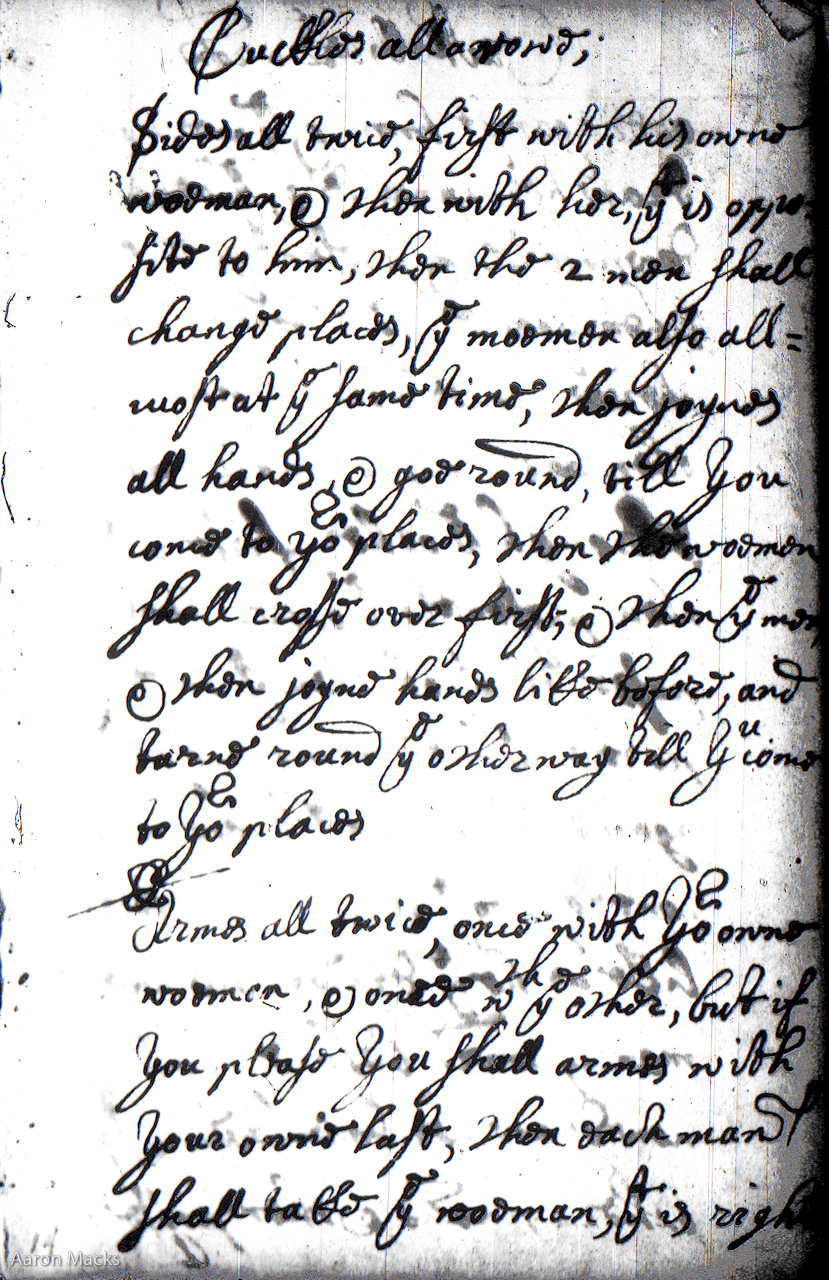 Cuckles all a rowe;
Sides all twice, first with his owne
woeman, & then with her, yt is oppo-
site to him, then the 2 men shall
change places, ye woemen also all=
most at ye same time, then joynes
all hands, & goe round, till You
come to yor places, then the woemen
shall crosse over first, & then ye men,
& then joyne hands like before, and
turne round ye other way till Yu come
to Yor places
Armes all twice, once with Yor owne
woemen, & once wth ye other, but if
You please You shall armes with
Your owne last, then each man
shall take ye woeman, yt is right
Aaron Macks